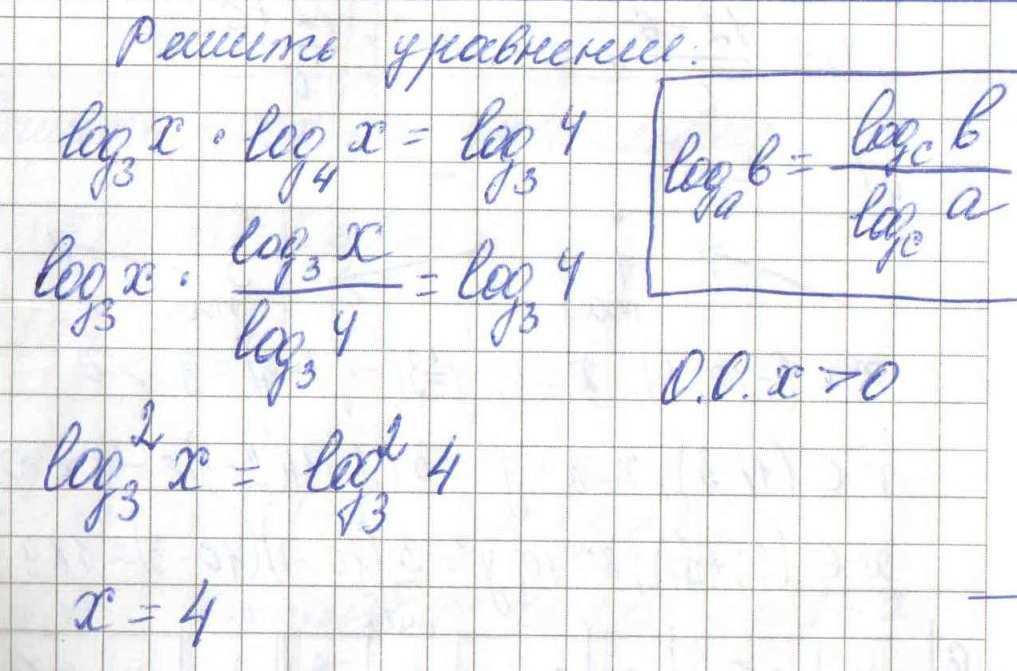 Решить уравнение:
log₃ x · log₄ x = log₃ 4
logₐ b = log_c b / log_c a
log₃ x · log₃ x / log₃ 4 = log₃ 4
O.O. x > 0
log₃² x = log₃² 4
x = 4